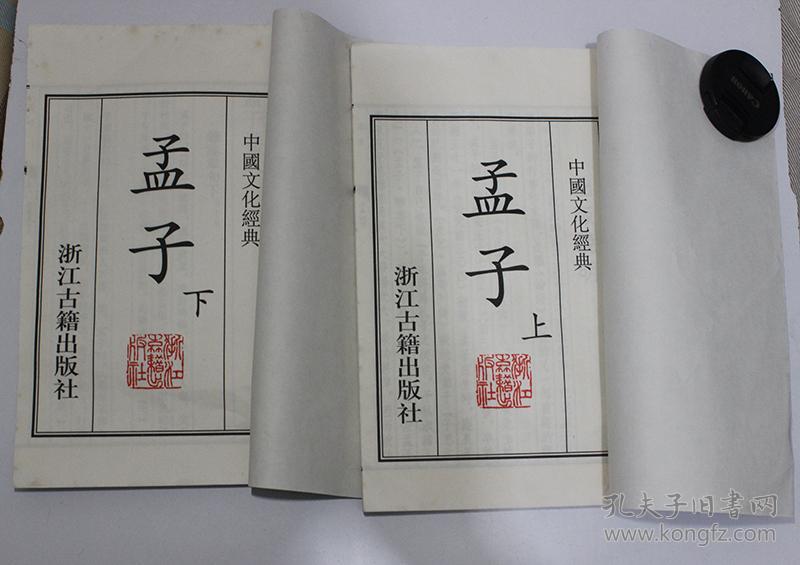 中國文化經典
孟子
上
浙江古籍出版社
浙江古籍出版社
中國文化經典
孟子
下
浙江古籍出版社
浙江古籍出版社
CANON
孔夫子旧书网
www.kongfz.com